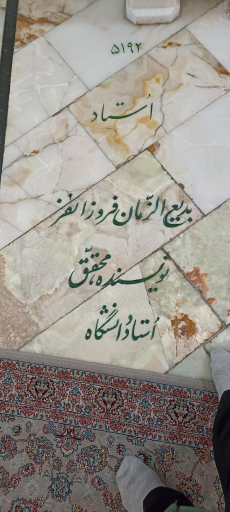 ۵۱۹۲
اُستاد
بدیع الزّمان فروزانفر
نویسنده، محقّق
اُستاد دانشگاه